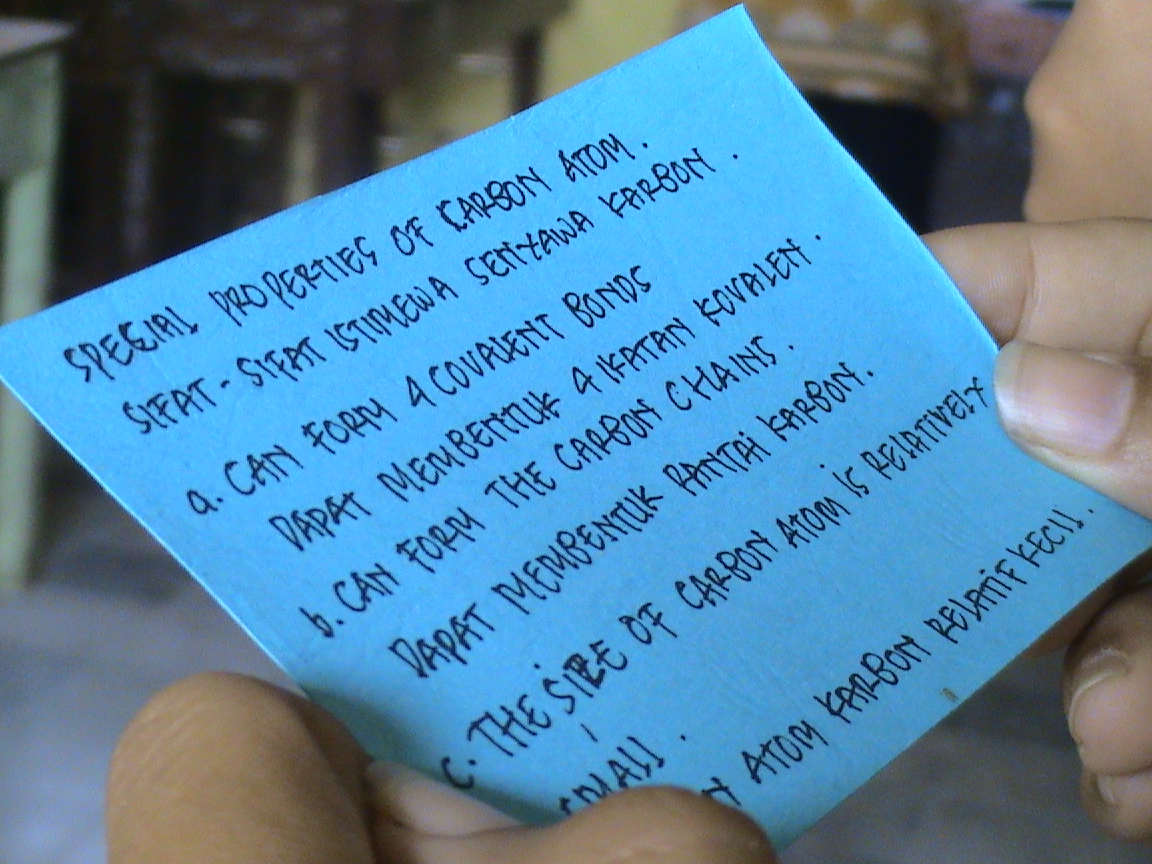 SPECIAL PROPERTIES OF CARBON ATOM.
SIFAT - SIFAT ISTIMEWA SENYAWA KARBON.
a. CAN FORM 4 COVALENT BONDS
DAPAT MEMBENTUK 4 IKATAN KOVALEN.
b. CAN FORM THE CARBON CHAINS.
DAPAT MEMBENTUK RANTAI KARBON.
C. THE SIZE OF CARBON ATOM IS RELATIVELY
SMALL.
ATOM KARBON RELATIF KECIL.